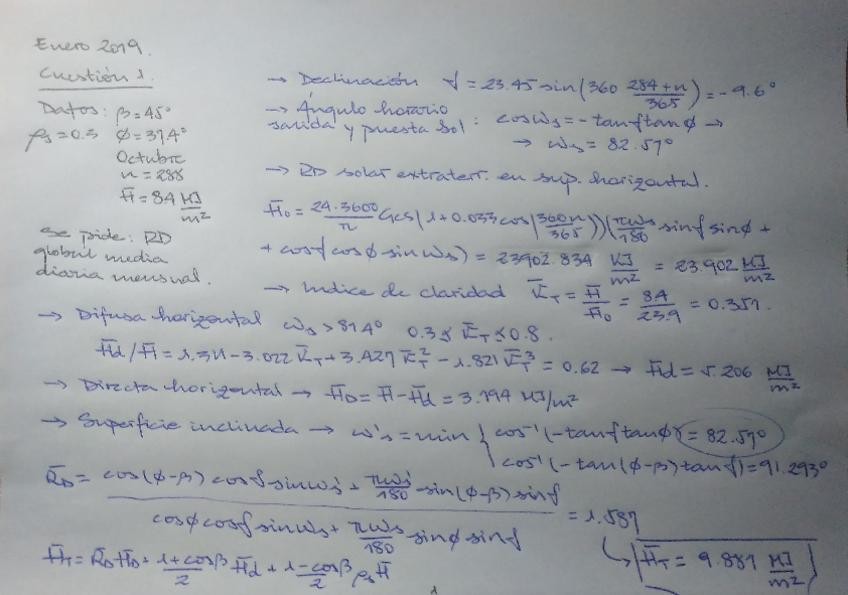 Enero 2019.
Cuestión 1.
Datos: β = 45°
ρs = 0.3 φ = 37.4°
Octubre
n = 288
H̄ = 8.4 MJ/m²
Se pide: RD
global media
diaria mensual.
→ Declinación δ = 23.45 sin(360 (284+n)/365) = -9.6°
→ Ángulo horario
salida y puesta sol: cos ωs = -tanδ tanφ →
→ ωs = 82.57°
→ RD solar extraterr. en sup. horizontal.
H̄o = 24·3600/π Gcs(1+0.033cos(360n/365))(πωs/180 sinδ sinφ +
+ cosδ cosφ sin ωs) = 23902.834 KJ/m² = 23.902 MJ/m²
→ Indice de claridad K̄T = H̄/H̄o = 8.4/23.9 = 0.351.
→ Difusa horizontal ωs > 81.4° 0.3 ≤ K̄T ≤ 0.8.
H̄d/H̄ = 1.311 - 3.022 K̄T + 3.427 K̄T² - 1.821 K̄T³ = 0.62 → H̄d = 5.206 MJ/m²
→ Directa horizontal → H̄D = H̄ - H̄d = 3.194 MJ/m²
→ Superficie inclinada → ω's = min { cos⁻¹(-tanδ tanφ) = 82.57°
cos⁻¹(-tan(φ-β) tanδ) = 91.293°
R̄D = (cos(φ-β) cosδ sin ω's + πω's/180 sin(φ-β) sinδ) / (cosφ cosδ sin ωs + πωs/180 sinφ sinδ) = 1.587
H̄T = R̄D H̄D + (1+cosβ)/2 H̄d + (1-cosβ)/2 ρs H̄
↳ H̄T = 9.881 MJ/m²